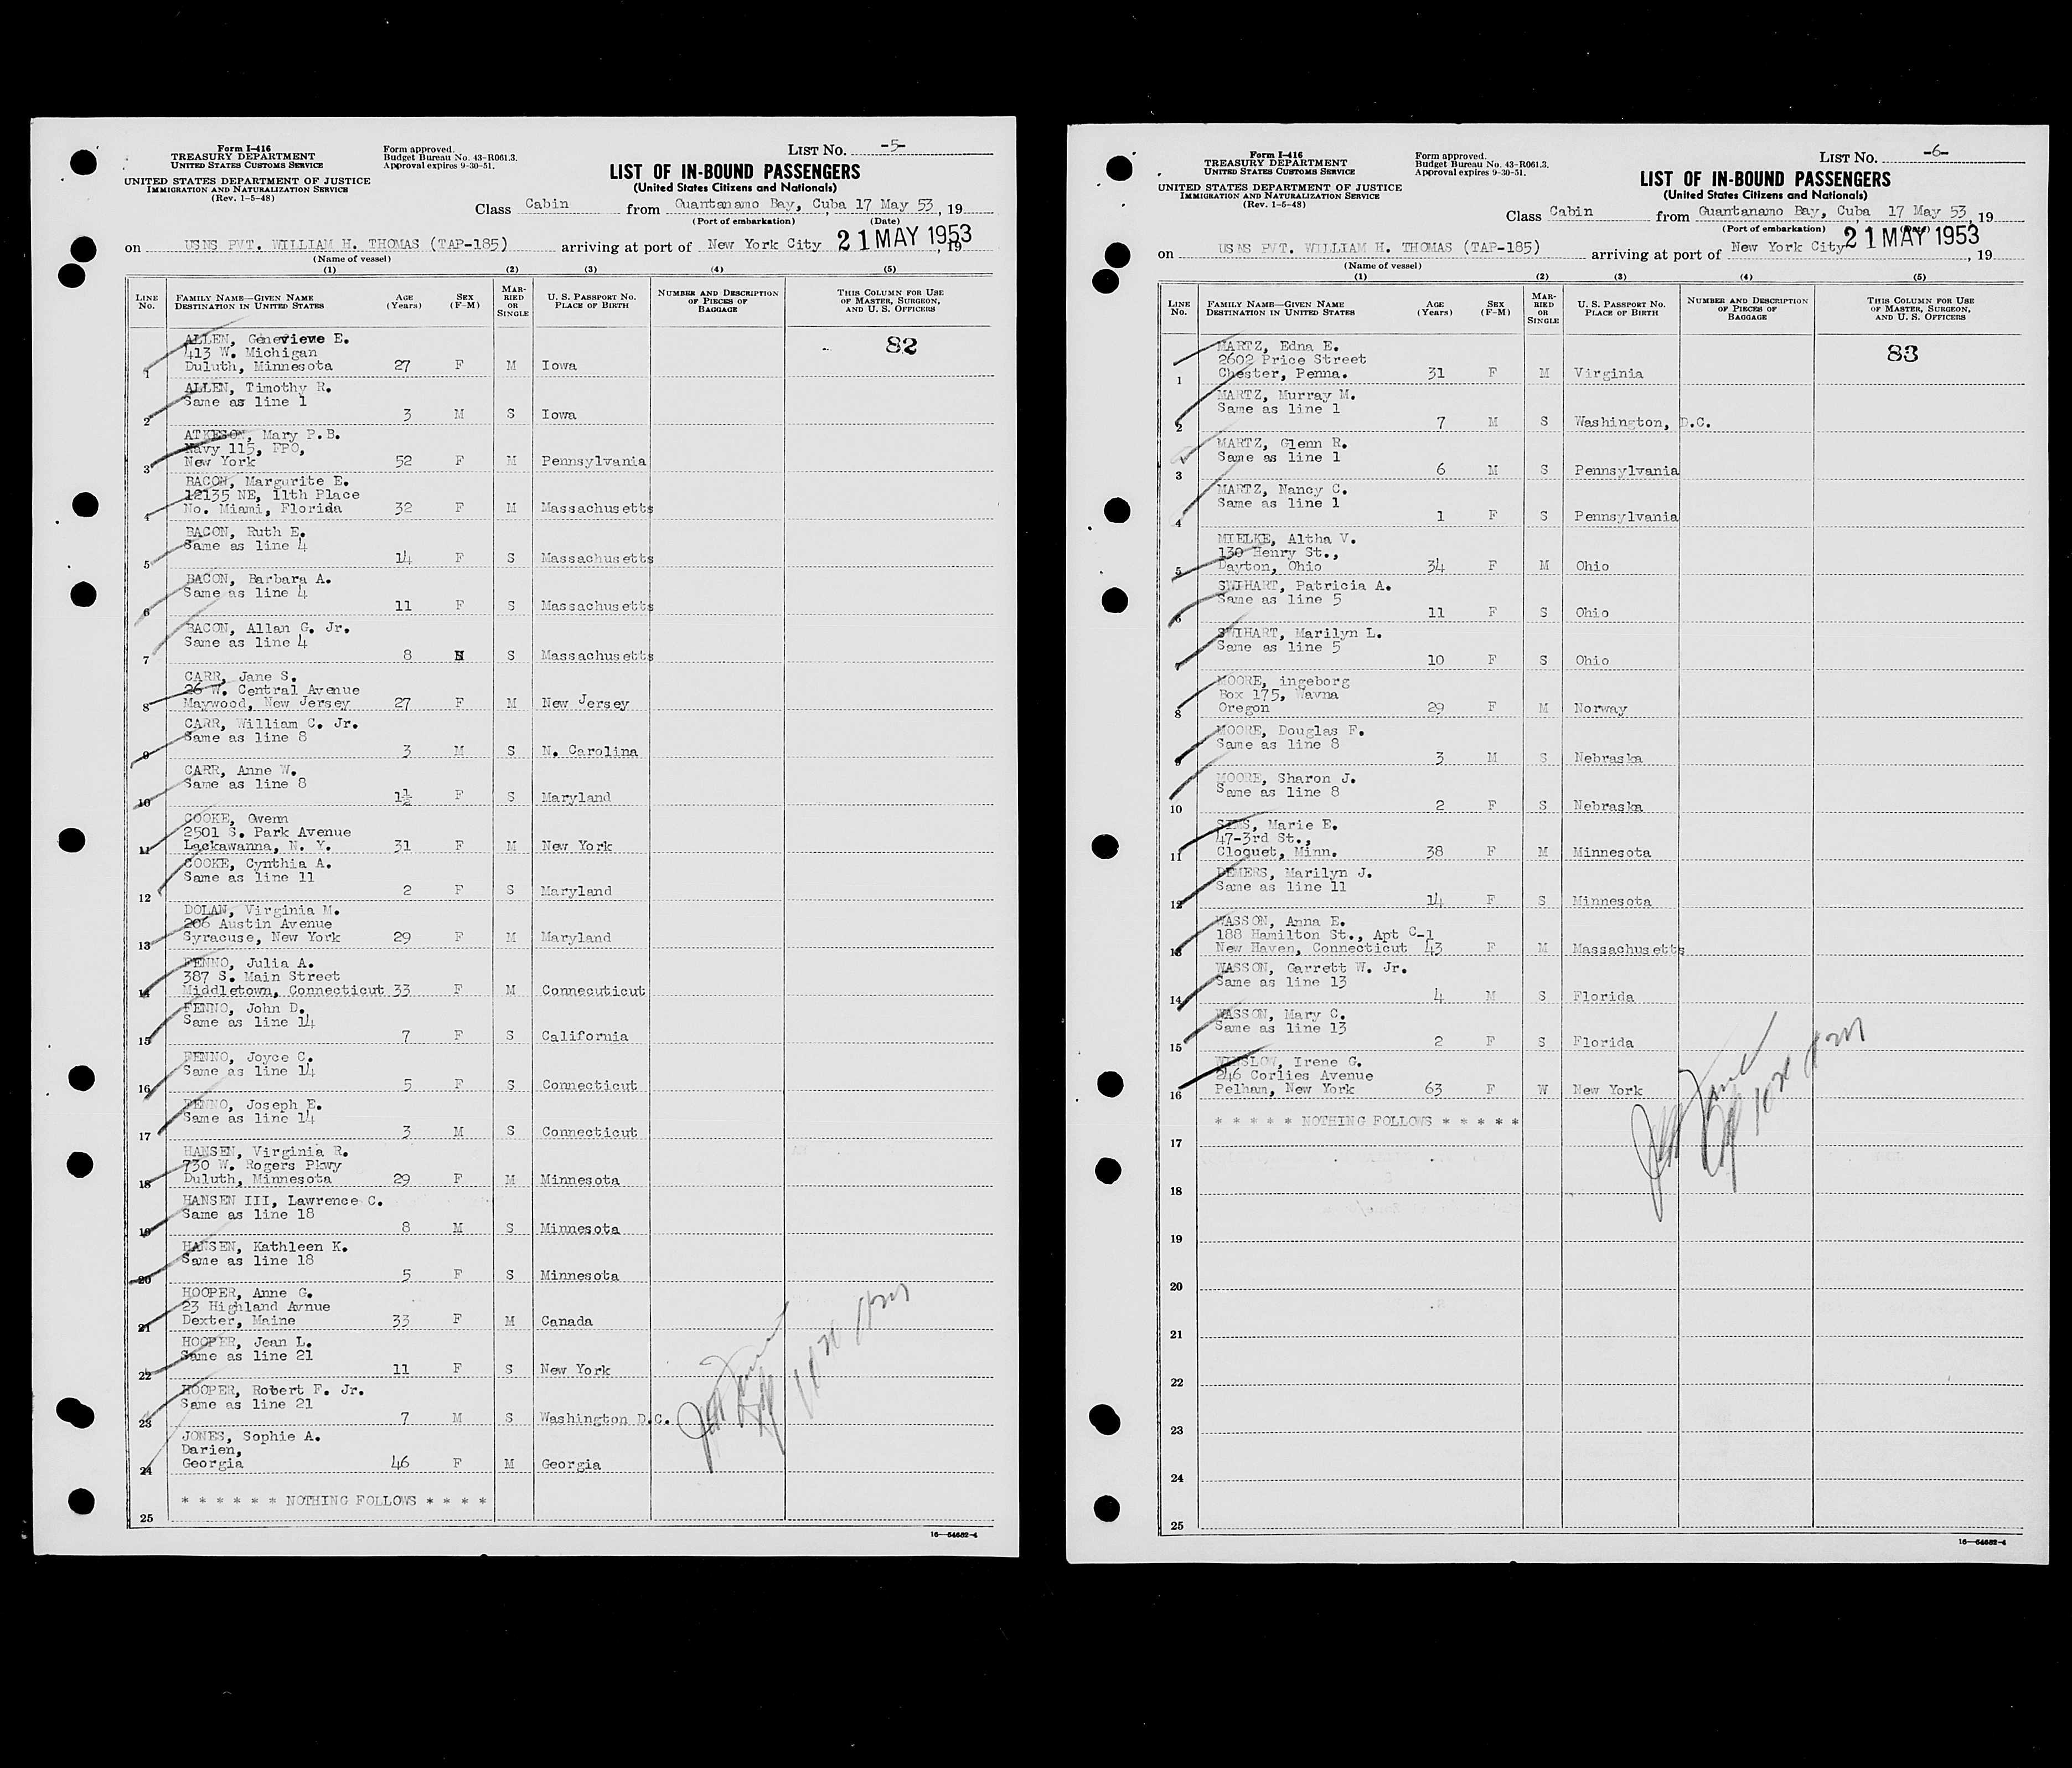 Form I-416
TREASURY DEPARTMENT
UNITED STATES CUSTOMS SERVICE
UNITED STATES DEPARTMENT OF JUSTICE
IMMIGRATION AND NATURALIZATION SERVICE
(Rev. 1-5-48)
Form approved.
Budget Bureau No. 43-R061.3.
Approval expires 9-30-51.
LIST NO. -5-
LIST OF IN-BOUND PASSENGERS
(United States Citizens and Nationals)
Class Cabin from Guantanamo Bay, Cuba 17 May 53, 19
(Port of embarkation) (Date)
on USNS PVT. WILLIAM H. THOMAS (TAP-185) arriving at port of New York City 21 MAY 1953, 19
(Name of vessel)
(1) (2) (3) (4) (5)
LINE NO. FAMILY NAME—GIVEN NAME DESTINATION IN UNITED STATES AGE (Years) SEX (F-M) MARRIED OR SINGLE U. S. PASSPORT NO. PLACE OF BIRTH NUMBER AND DESCRIPTION OF PIECES OF BAGGAGE THIS COLUMN FOR USE OF MASTER, SURGEON, AND U. S. OFFICERS
82
ALLEN, Genevieve E.
413 W. Michigan
1 Duluth, Minnesota 27 F M Iowa
ALLEN, Timothy R.
Same as line 1
2 3 M S Iowa
ATKESON, Mary P.B.
Navy 115, FPO,
3 New York 52 F M Pennsylvania
BACON, Margurite E.
12135 NE, 11th Place
4 No. Miami, Florida 32 F M Massachusetts
BACON, Ruth E.
Same as line 4
5 14 F S Massachusetts
BACON, Barbara A.
Same as line 4
6 11 F S Massachusetts
BACON, Allan G. Jr.
Same as line 4
7 8 S Massachusetts
CARR, Jane S.
26 W. Central Avenue
8 Maywood, New Jersey 27 F M New Jersey
CARR, William C. Jr.
Same as line 8
9 3 M S N. Carolina
CARR, Anne W.
Same as line 8
10 1½ F S Maryland
COOKE, Gwenn
2501 S. Park Avenue
11 Lackawanna, N. Y. 31 F M New York
COOKE, Cynthia A.
Same as line 11
12 2 F S Maryland
DOLAN, Virginia M.
206 Austin Avenue
13 Syracuse, New York 29 F M Maryland
FENNO, Julia A.
387 S. Main Street
14 Middletown, Connecticut 33 F M Connecuticut
FENNO, John D.
Same as line 14
15 7 F S California
FENNO, Joyce C.
Same as line 14
16 5 F S Connecticut
FENNO, Joseph E.
Same as line 14
17 3 M S Connecticut
HANSEN, Virginia R.
730 W. Rogers Pkwy
18 Duluth, Minnesota 29 F M Minnesota
HANSEN III, Lawrence C.
Same as line 18
19 8 M S Minnesota
HANSEN, Kathleen K.
Same as line 18
20 5 F S Minnesota
HOOPER, Anne G.
23 Highland Avnue
21 Dexter, Maine 33 F M Canada
HOOPER, Jean L.
Same as line 21
22 11 F S New York
HOOPER, Robert F. Jr.
Same as line 21
23 7 M S Washington D.C.
JONES, Sophie A.
Darien,
24 Georgia 46 F M Georgia
* * * * * * NOTHING FOLLOWS * * * *
25
16—54682-4
Form I-416
TREASURY DEPARTMENT
UNITED STATES CUSTOMS SERVICE
UNITED STATES DEPARTMENT OF JUSTICE
IMMIGRATION AND NATURALIZATION SERVICE
(Rev. 1-5-48)
Form approved.
Budget Bureau No. 43-R061.3.
Approval expires 9-30-51.
LIST NO. -6-
LIST OF IN-BOUND PASSENGERS
(United States Citizens and Nationals)
Class Cabin from Guantanamo Bay, Cuba 17 May 53, 19
(Port of embarkation) (Date)
on USNS PVT. WILLIAM H. THOMAS (TAP-185) arriving at port of New York City 21 MAY 1953, 19
(Name of vessel)
(1) (2) (3) (4) (5)
LINE NO. FAMILY NAME—GIVEN NAME DESTINATION IN UNITED STATES AGE (Years) SEX (F-M) MARRIED OR SINGLE U. S. PASSPORT NO. PLACE OF BIRTH NUMBER AND DESCRIPTION OF PIECES OF BAGGAGE THIS COLUMN FOR USE OF MASTER, SURGEON, AND U. S. OFFICERS
83
MARTZ, Edna E.
2602 Price Street
1 Chester, Penna. 31 F M Virginia
MARTZ, Murray M.
Same as line 1
2 7 M S Washington, D.C.
MARTZ, Glenn R.
Same as line 1
3 6 M S Pennsylvania
MARTZ, Nancy C.
Same as line 1
4 1 F S Pennsylvania
MIELKE, Altha V.
130 Henry St.,
5 Dayton, Ohio 34 F M Ohio
SWIHART, Patricia A.
Same as line 5
6 11 F S Ohio
SWIHART, Marilyn L.
Same as line 5
7 10 F S Ohio
MOORE, ingeborg
Box 175, Wavna
8 Oregon 29 F M Norway
MOORE, Douglas F.
Same as line 8
9 3 M S Nebraska
MOORE, Sharon J.
Same as line 8
10 2 F S Nebraska
SIMS, Marie E.
47-3rd St.,
11 Cloquet, Minn. 38 F M Minnesota
DEMERS, Marilyn J.
Same as line 11
12 14 F S Minnesota
WASSON, Anna E.
188 Hamilton St., Apt C-1
13 New Haven, Connecticut 43 F M Massachusetts
WASSON, Garrett W. Jr.
Same as line 13
14 4 M S Florida
WASSON, Mary C.
Same as line 13
15 2 F S Florida
WINSLOW, Irene G.
246 Corlies Avenue
16 Pelham, New York 63 F W New York
* * * * * NOTHING FOLLOWS * * * * *
17
18
19
20
21
22
23
24
25
16—54682-4